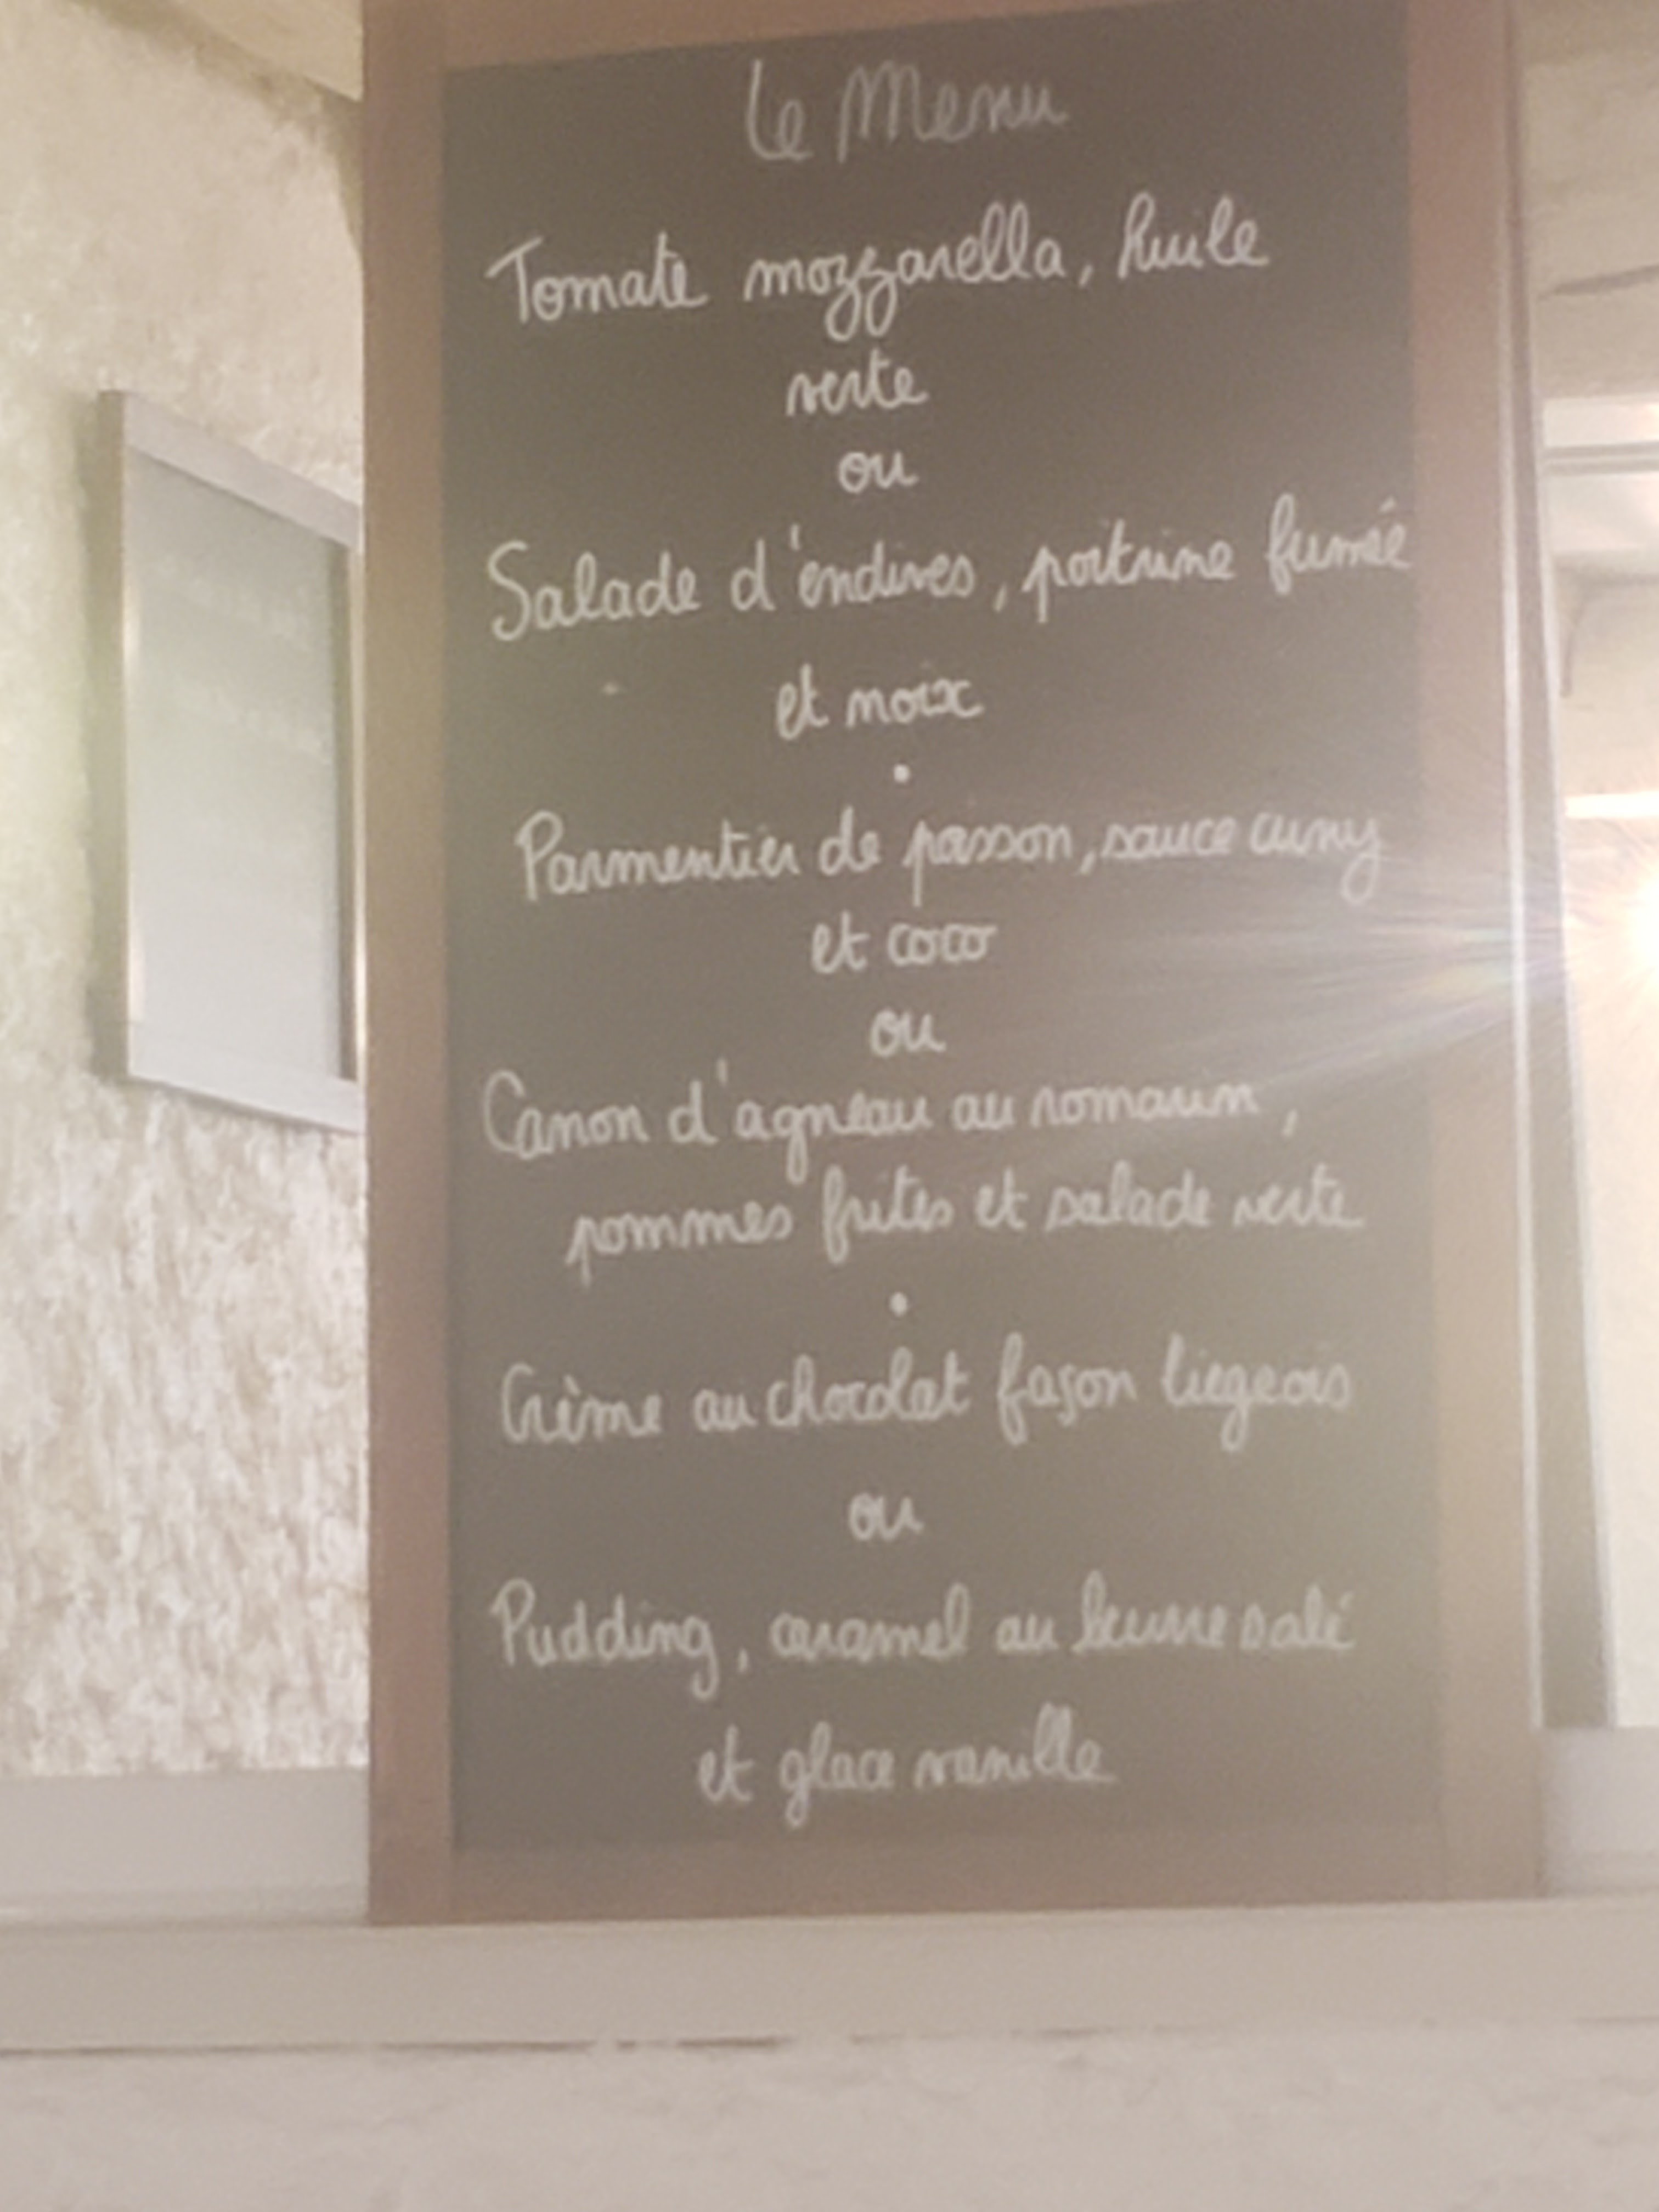 Le Menu
Tomate mozzarella, huile
verte
ou
Salade d'endives, poitrine fumée
et noix
•
Parmentier de poisson, sauce curry
et coco
ou
Canon d'agneau au romarin,
pommes frites et salade verte
•
Crème au chocolat façon liegeois
ou
Pudding, caramel au beurre salé
et glace vanille